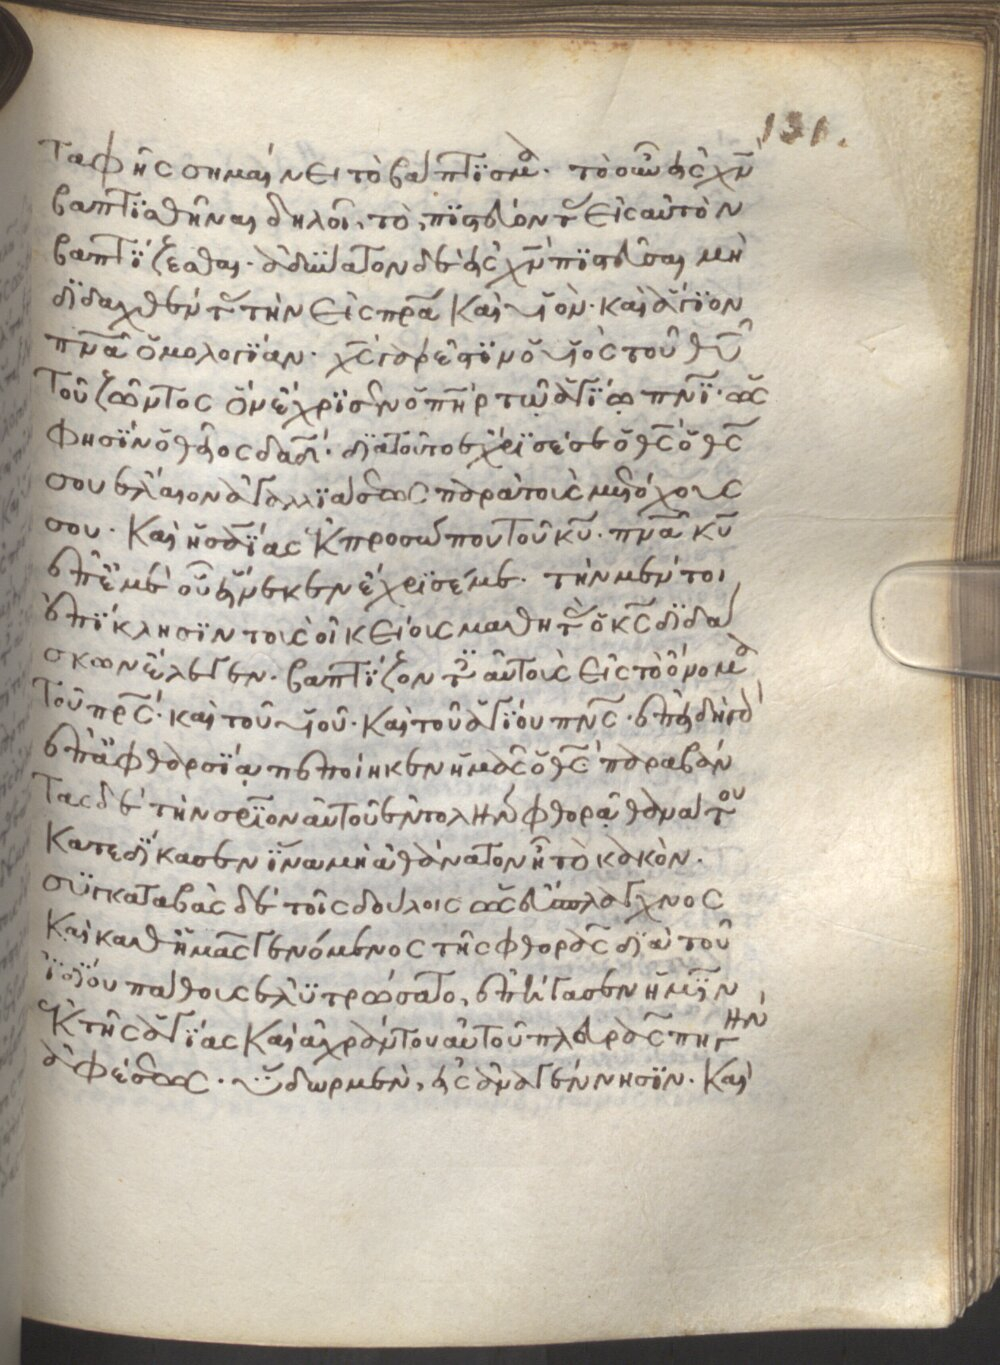 131.
ταφῆς σημαίνει τὸ βάπτϊσμα. τὸ οὖν εἰς χν̅
βαπτϊσθῆναι δηλοῖ, τὸ, πϊστεύοντας εἰς αὐτὸν
βαπτΐζεσθαι. ἀδύνατον δὲ εἰς χν̅ πϊστεῦσαι μὴ
δϊδαχθέντας τὴν εἰς πρ̅α καὶ υἱὸν. καὶ ἅγϊον
πν̅α ὁμολογΐαν. χς̅ γάρ ἐστϊν ὁ υἱὸς τοῦ θυ̅
τοῦ ζῶντος ὃν ἔχρϊσεν ὁ πηρ̅ τῷ ἁγΐῳ πνϊ̅. ὥς
φησϊν ὁ θεῖος δαδ̅. δϊὰ τοῦτο ἔχρϊσέ σε ὁ θς̅ ὁ θς̅
σου ἔλαιον ἀγαλλϊάσεως παρὰ τοὺς μετόχους
σου. καὶ ἡσαΐας ἐκ προσώπου τοῦ κυ̅. πν̅α κυ̅
ἐπ' ἐμὲ οὗ εἵνεκεν ἔχρϊσέ με. τὴν μέντοι
ἐπΐκλησϊν τοὺς οἰκείους μαθητὰς ὁ κς̅ δϊδά
σκων ἔλεγεν. βαπτΐζοντες αὐτοὺς εἰς τὸ ὄνομα
τοῦ πρς̅. καὶ τοῦ υἱοῦ. καὶ τοῦ ἁγΐου πνς̅. ἐπειδὴ γὰρ
ἐπ' ἀφθαρσΐᾳ πεποίηκεν ἡμᾶς ὁ θς̅ παραβάν
τας δὲ τὴν σρϊ̅ον αὐτοῦ ἐντολὴν φθορᾷ θανάτου
κατεδΐκασεν ΐνα μὴ ἀθάνατον ἦ τὸ κακόν.
συγκαταβὰς δὲ τοῖς δούλοις ὡς εὔσπλαγχνος
καὶ καθ' ἡμᾶς γενόμενος τῆς φθορᾶς δϊὰ τοῦ
ϊδΐου πάθους ἐλυτρώσατο, ἐπήγασεν ἡμῖν
ἐκ τῆς ἁγΐας καὶ ἀχράντου αὐτοῦ πλευρᾶς πηγὴν
ἀφέσεως. ὕδωρ μὲν, εἰς ἀναγέννησϊν. καὶ